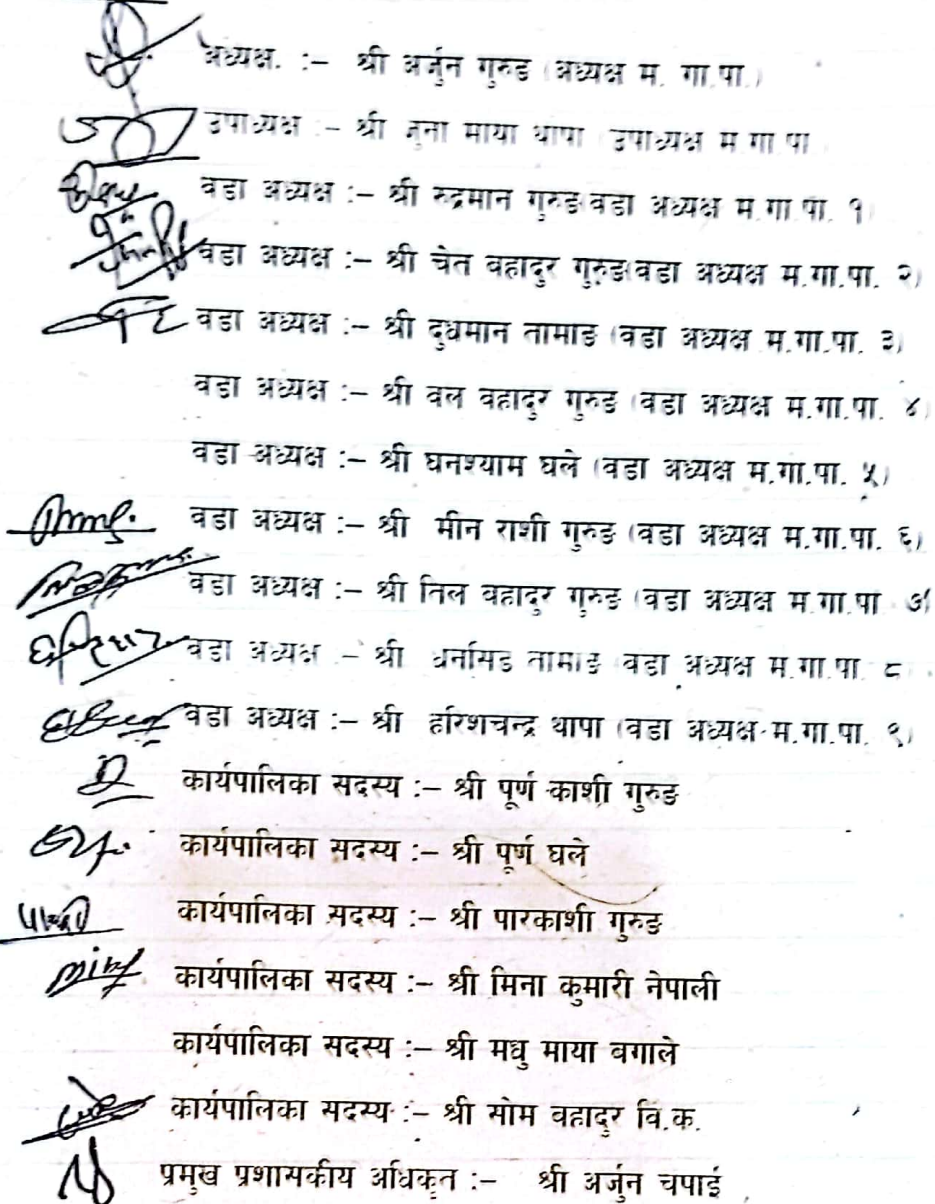 अध्यक्ष. :– श्री अर्जुन गुरुङ (अध्यक्ष म. गा.पा.)
उपाध्यक्ष :– श्री माया थापा (उपाध्यक्ष म.गा.पा.
वडा अध्यक्ष :– श्री रुद्रमान गुरुङ(वडा अध्यक्ष म.गा.पा. १)
वडा अध्यक्ष :– श्री चेत वहादुर गुरुङ(वडा अध्यक्ष म.गा.पा. २)
वडा अध्यक्ष :– श्री दुधमान तामाङ (वडा अध्यक्ष म.गा.पा. ३)
वडा अध्यक्ष :– श्री वल वहादुर गुरुङ (वडा अध्यक्ष म.गा.पा. ४)
वडा अध्यक्ष :– श्री घनश्याम घले (वडा अध्यक्ष म.गा.पा. ५)
वडा अध्यक्ष :– श्री मीन राशी गुरुङ (वडा अध्यक्ष म.गा.पा. ६)
वडा अध्यक्ष :– श्री तिल वहादुर गुरुङ (वडा अध्यक्ष म.गा.पा ७)
वडा अध्यक्ष :– श्री धनसिङ तामाङ (वडा अध्यक्ष म.गा.पा ८)
वडा अध्यक्ष :– श्री हरिशचन्द्र थापा (वडा अध्यक्ष म.गा.पा. ९)
कार्यपालिका सदस्य :– श्री पूर्ण काशी गुरुङ
कार्यपालिका सदस्य :– श्री पूर्ण घले
कार्यपालिका सदस्य :– श्री पारकाशी गुरुङ
कार्यपालिका सदस्य :– श्री मिना कुमारी नेपाली
कार्यपालिका सदस्य :– श्री मधु माया बगाले
कार्यपालिका सदस्य :– श्री सोम वहादुर वि.क.
प्रमुख प्रशासकीय अधिकृत :– श्री अर्जुन चपाई